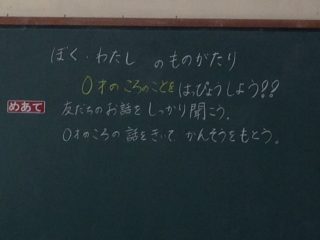 ぼく・わたし のものがたり
0才のころのことを はっぴょうしよう!!
めあて 友だちのお話をしっかり聞こう。
0才のころの話をきいて かんそうをもとう。